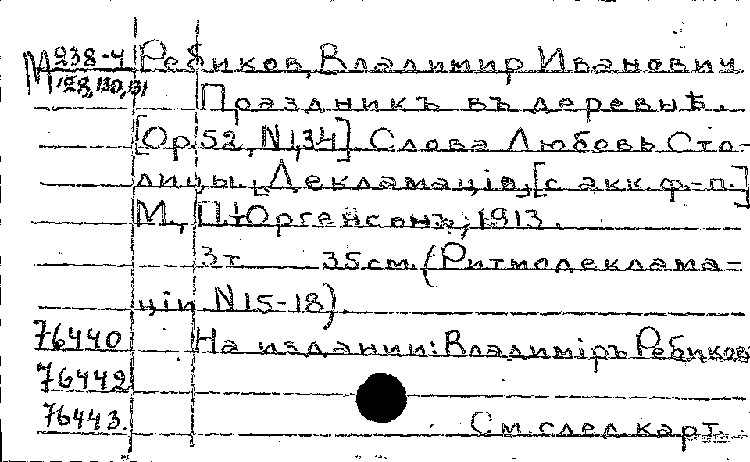 М 238-4 Ребиков, Владимир Иванович
128,130,131 Праздникъ въ деревнѣ.
[Op.52, N1,3,4] Слова Любовь Сто-
лицы. Декламація, [с акк. ф.-п.]
М., П. Юргенсонъ, 1913.
3 т. 35 см. (Ритмодеклама-
ціи N 15-18).
76440 На издании: Владиміръ Ребиков
76442
76443. См. след. карт.